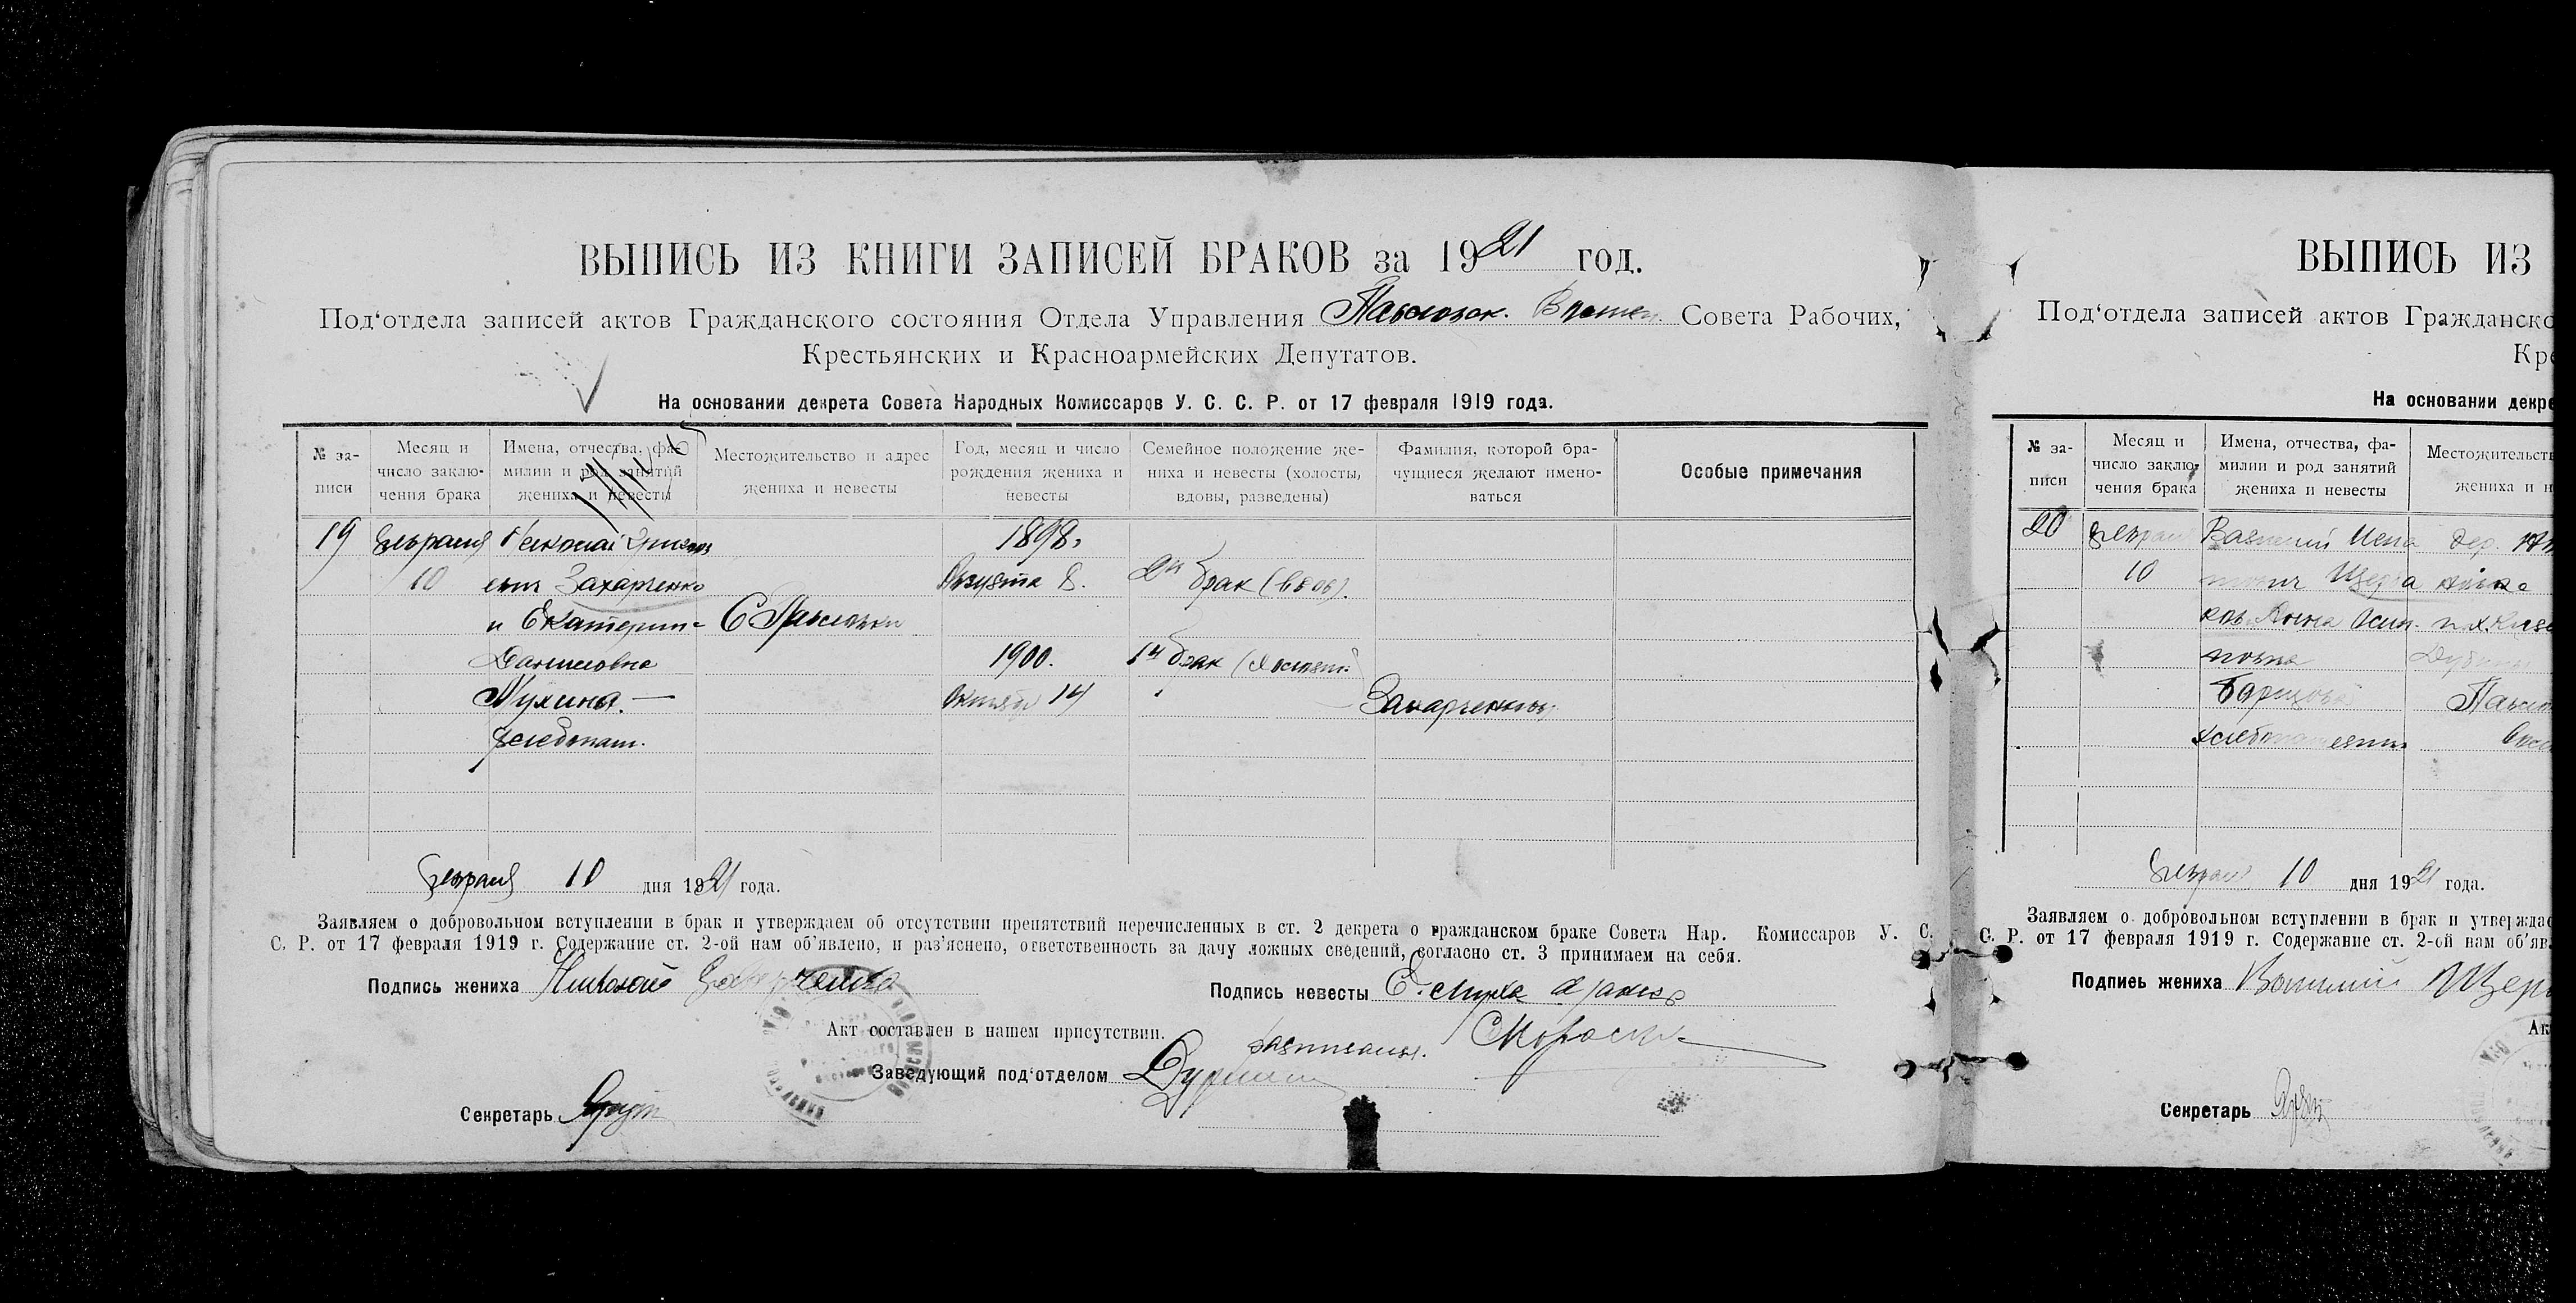 ВЫПИСЬ ИЗ КНИГИ ЗАПИСЕЙ БРАКОВ за 1921 год.
Под‘отдела записей актов Гражданского состояния Отдела Управления Павловск. Совета Рабочих,
Крестьянских и Красноармейских Депутатов.
На основании декрета Совета Народных Комиссаров У. С. С. Р. от 17 февраля 1919 года.
№ за-
писи
Месяц и
число заклю-
чения брака
Имена, отчества, фа-
милии и род занятий
жениха и невесты
Местожительство и адрес
жениха и невесты
Год, месяц и число
рождения жениха и
невесты
Семейное положение же-
ниха и невесты (холосты,
вдовы, разведены)
Фамилия, которой бра-
чущиеся желают имено-
ваться
Особые примечания
19 Февраля Николай 1898.
10 Захарченко Августа 8. 2й брак (вдов).
и Екатерина С Павловки
Даниловна 1900. 1й брак
Мухина. — Октябр 14 Захарченковы
хлебопаш.
Февраля 10 дня 1921 года.
Заявляем о добровольном вступлении в брак и утверждаем об отсутствии препятствий перечисленных в ст. 2 декрета о гражданском браке Совета Нар. Комиссаров У. С.
С. Р. от 17 февраля 1919 г. Содержание ст. 2-ой нам об‘явлено, и раз‘яснено, ответственность за дачу ложных сведений, согласно ст. 3 принимаем на себя.
Подпись жениха Николай Захарченко
Подпись невесты
Акт составлен в нашем присутствии.
Заведующий под‘отделом
Секретарь
ВЫПИСЬ ИЗ
Под‘отдела записей актов Гражданско
Кре
На основании декре
№ за-
писи
Месяц и
число заклю-
чения брака
Имена, отчества, фа-
милии и род занятий
жениха и невесты
Местожительств
жениха и н
20 Феврал Василий дер.
10
Анна
Февраля 10 дня 1921 года.
Заявляем о добровольном вступлении в брак и утверждае
С. Р. от 17 февраля 1919 г. Содержание ст. 2-ой нам об‘яв
Подпись жениха Василий Щер
Ак
Секретарь